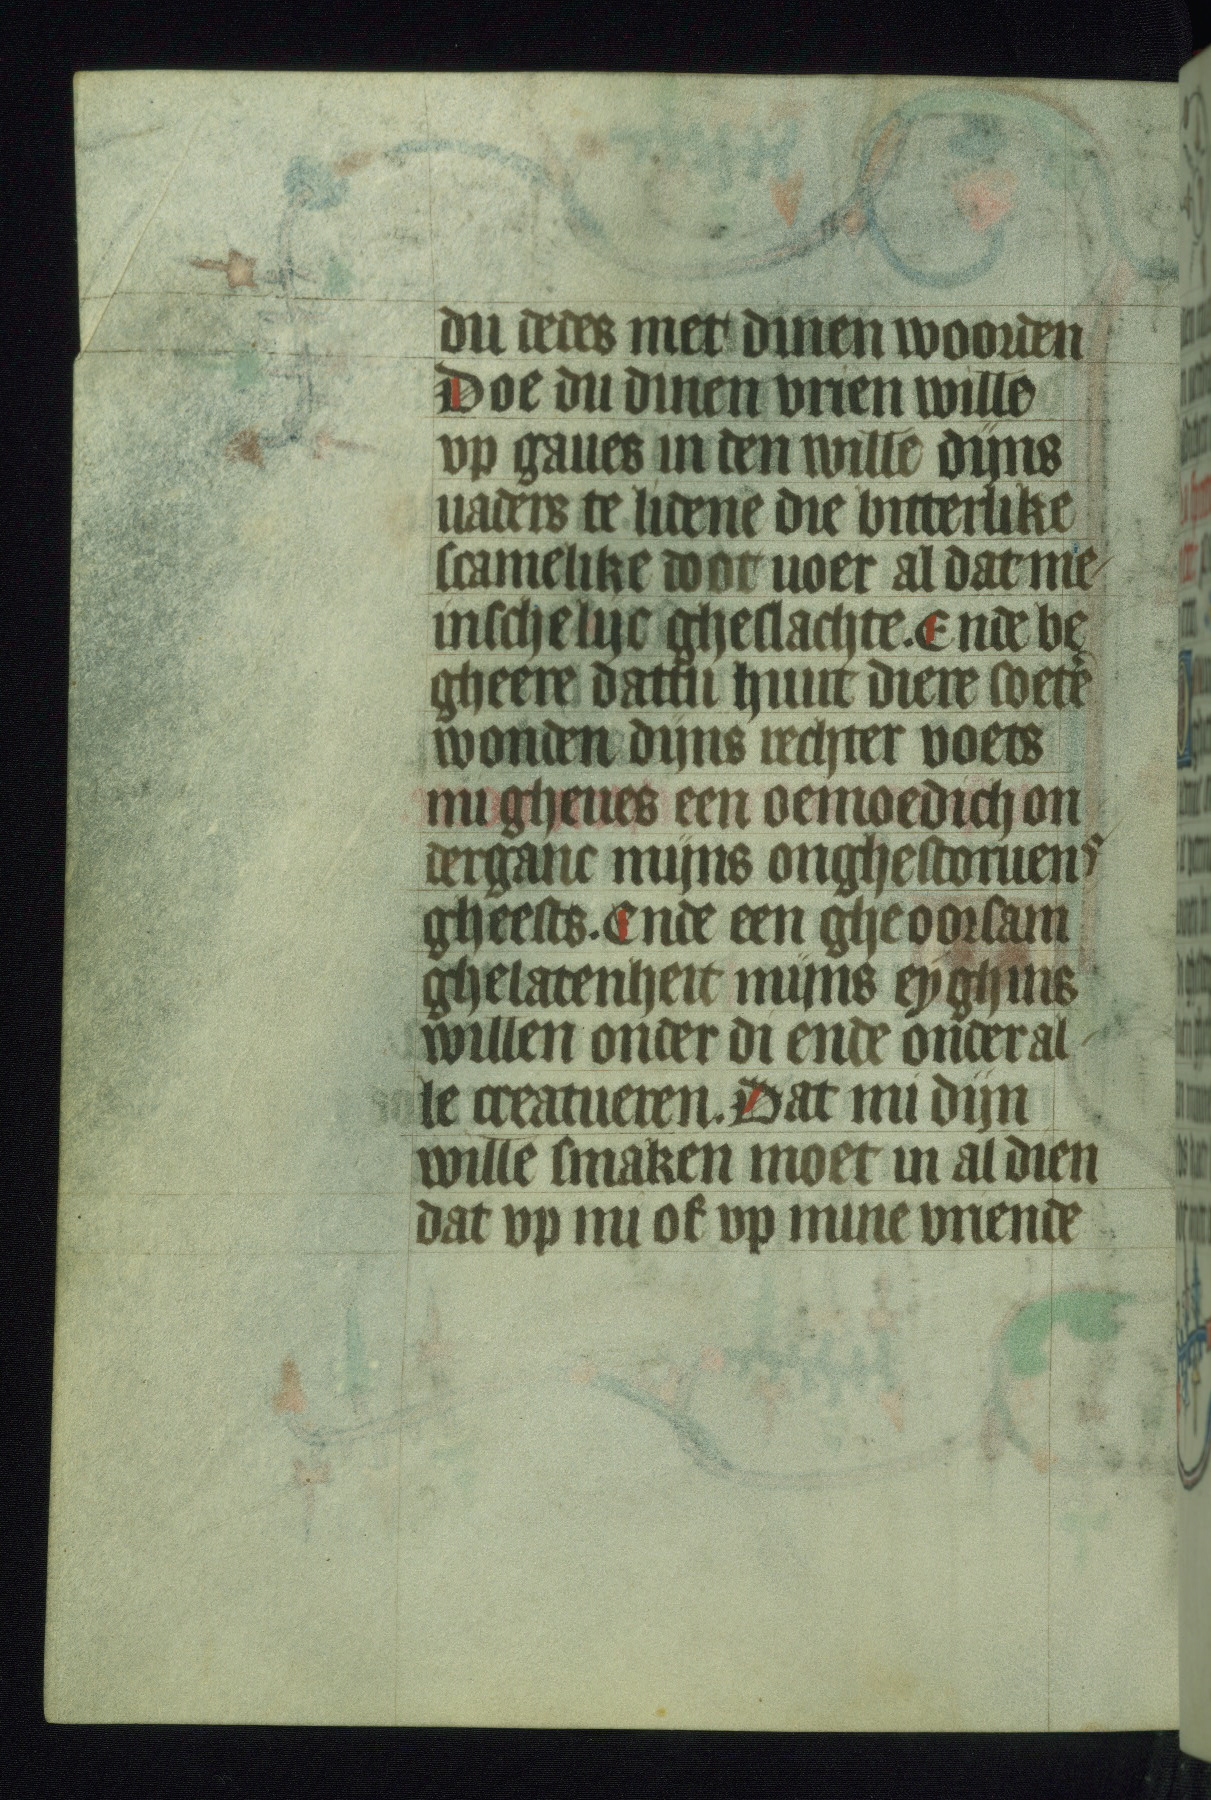 du dedes met dinen woorden
Doe du dinen vrien wille
vp gaues in den wille dijns
uaders te lidene die bitterlike
scamelike doot uoer al dat me
inschelijc gheslachte. Ende be
gheere dattu huut diere soetē
wonden dijns rechter voets
mi gheues een oemoedich on
derganc mijns onghestoruens
gheests. Ende een gheoorsam
ghelatenheit mijns eyghins
willen onder di ende onder al
le creatueren. Dat mi dijn
wille smaken moet in al dien
dat vp mi of vp mine vriende